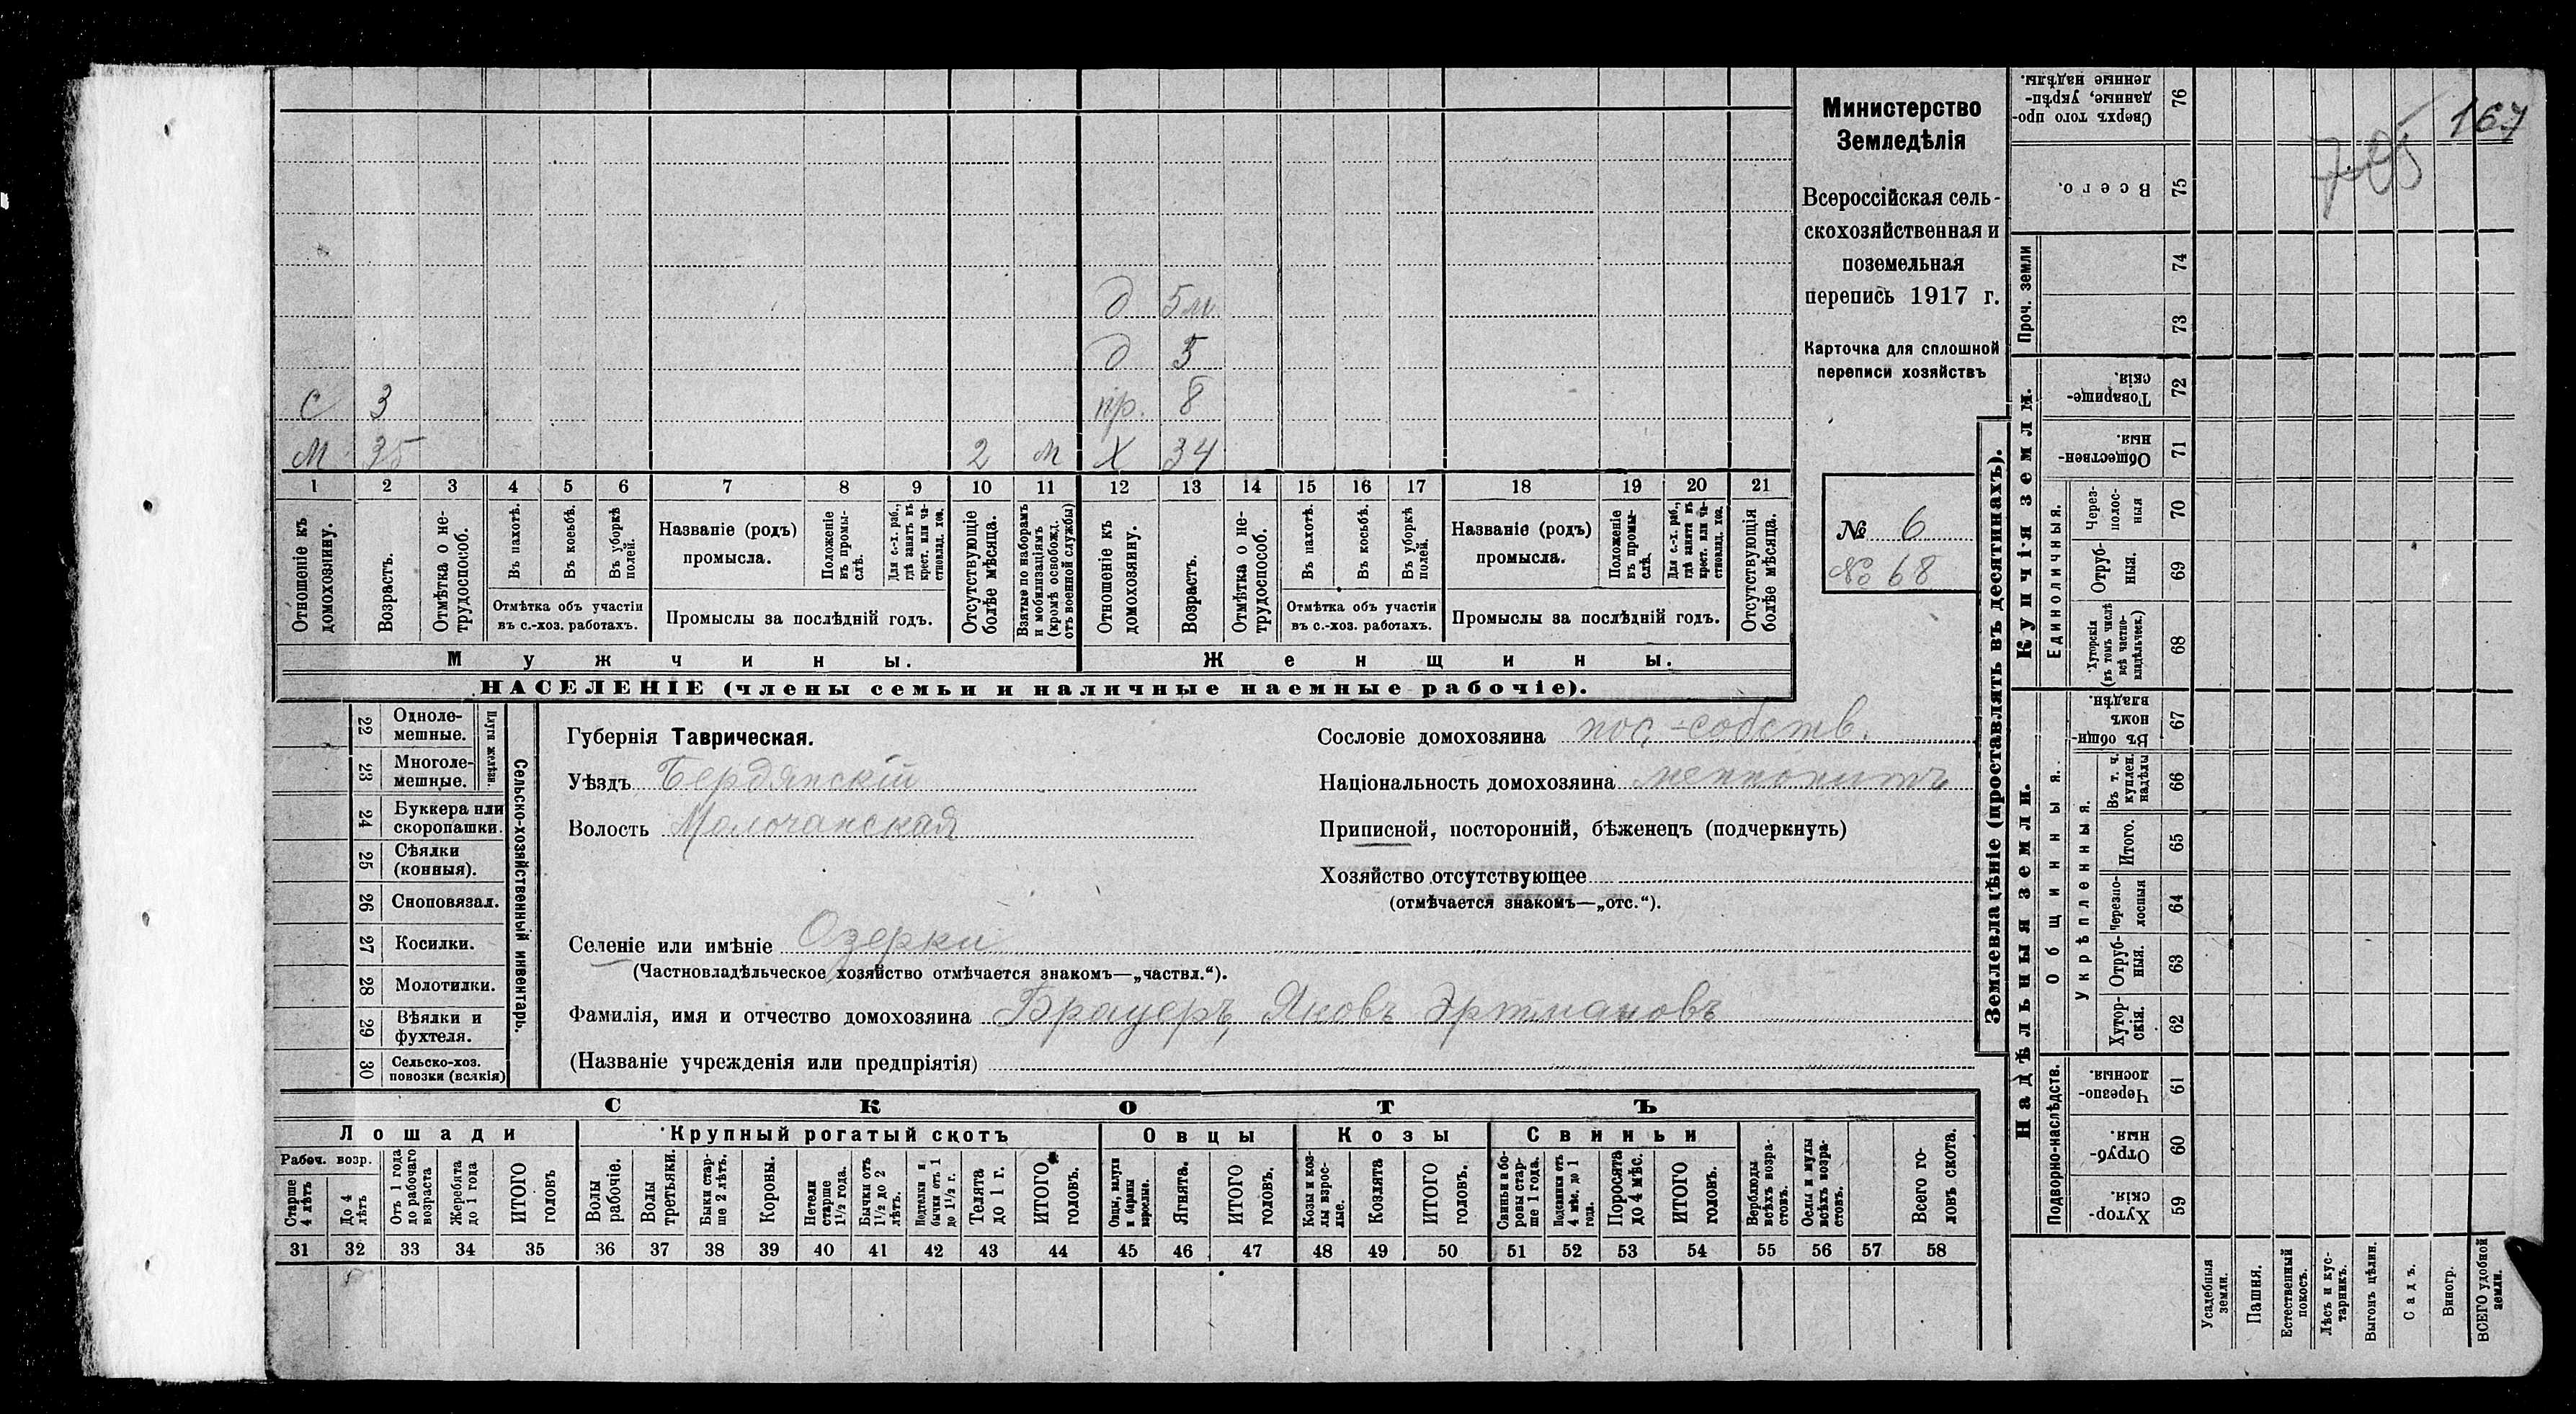 167
705
Министерство
Земледѣлія
Всероссійская сель-
скохозяйственная и
поземельная
перепись 1917 г.
Карточка для сплошной
переписи хозяйствъ
№ 6
№ 68
д 5 м
д 5
С 3 пр. 8
М 35 2 м Х 34
1 2 3 4 5 6 7 8 9 10 11 12 13 14 15 16 17 18 19 20 21
Отношеніе къ домохозяину.
Возрастъ.
Отмѣтка о не-трудоспособ.
Въ пахотѣ.
Въ косьбѣ.
Въ уборкѣ полей.
Отмѣтка объ участіи
въ с.-хоз. работахъ.
Названіе (родъ)
промысла.
Положеніе въ промы-слѣ.
Для с.-х. раб., гдѣ занятъ въ крест. или ча-стновлад. хоз.
Промыслы за послѣдній годъ.
Отсутствующіе болѣе мѣсяца.
Взятые по наборамъ и мобилизаціямъ (кромѣ освобожд. отъ военной службы)
Отношеніе къ домохозяину.
Возрастъ.
Отмѣтка о не-трудоспособ.
Въ пахотѣ.
Въ косьбѣ.
Въ уборкѣ полей.
Отмѣтка объ участіи
въ с.-хоз. работахъ.
Названіе (родъ)
промысла.
Положеніе въ промы-слѣ.
Для с.-х. раб., гдѣ занята въ крест. или ча-стновлад. хоз.
Промыслы за послѣдній годъ.
Отсутствующія болѣе мѣсяца.
Мужчины. Женщины.
НАСЕЛЕНІЕ (члены семьи и наличные наемные рабочіе).
22 Одноле-мешные.
23 Многоле-мешные.
Плуги желѣзн.
24 Буккера или скоропашки.
25 Сѣялки (конныя).
26 Сноповязал.
27 Косилки.
28 Молотилки.
29 Вѣялки и фухтеля.
30 Сельско-хоз. повозки (всякія)
Сельско-хозяйственный инвентарь.
Губернія Таврическая.
Уѣздъ Бердянскій
Волость Молочанская
Сословіе домохозяина пос.-собств.
Національность домохозяина меннонитъ
Приписной, посторонній, бѣженецъ (подчеркнуть)
Хозяйство отсутствующее
(отмѣчается знакомъ—„отс.“).
Селеніе или имѣніе Озерки
(Частновладѣльческое хозяйство отмѣчается знакомъ—„частвл.“).
Фамилія, имя и отчество домохозяина Брауеръ, Яковъ Эртмановъ
(Названіе учрежденія или предпріятія)
СКОТЪ
Лошади Крупный рогатый скотъ Овцы Козы Свиньи
Рабоч. возр.
Старше 4 лѣтъ
До 4 лѣтъ
Отъ 1 года до рабочаго возраста
Жеребята до 1 года
ИТОГО головъ
Волы рабочіе.
Волы третьяки.
Быки стар-ше 2 лѣтъ.
Коровы.
Нетели старше 1½ года.
Бычки отъ 1½ до 2 лѣтъ.
Подтелки и бычки отъ 1 до 1½ г.
Телята до 1 г.
ИТОГО головъ.
Овцы, валухи и бараны взрослые.
Ягнята.
ИТОГО головъ.
Козы и коз-лы взрос-лые.
Козлята
ИТОГО головъ.
Свиньи и бо-ровы стар-ше 1 года.
Подсвинки отъ 4 мѣс. до 1 года.
Поросята до 4 мѣс.
ИТОГО головъ.
Верблюды всѣхъ возра-стовъ.
Ослы и мулы всѣхъ возра-стовъ.
Всего го-ловъ скота.
31 32 33 34 35 36 37 38 39 40 41 42 43 44 45 46 47 48 49 50 51 52 53 54 55 56 57 58
Землевладѣніе (проставлять въ десятинахъ).
Проч. земли
Купчія земли.
Единоличныя.
Надѣльныя земли.
Общинныя.
Укрѣпленныя.
Подворно-наслѣдств.
Сверхъ того про-данные, укрѣп-ленные надѣлы. 76
Всего. 75
74
73
Товарище-скія. 72
Обществен-ныя 71
Через-полос-ныя 70
Отруб-ныя. 69
Хуторскія (въ томъ числѣ всѣ частно-владѣльческ.) 68
Въ общи-номъ владѣн. 67
Въ т. ч. куплен. надѣлы 66
Итого. 65
Черезпо-лосныя 64
Отруб-ныя. 63
Хутор-скія. 62
Черезпо-лосныя. 61
Отруб-ныя. 60
Хутор-скія. 59
Усадебныя земли.
Пашня.
Естественный покосъ.
Лѣсъ и кус-тарникъ.
Выгонъ цѣлин.
Садъ.
Виногр.
ВСЕГО удобной земли.